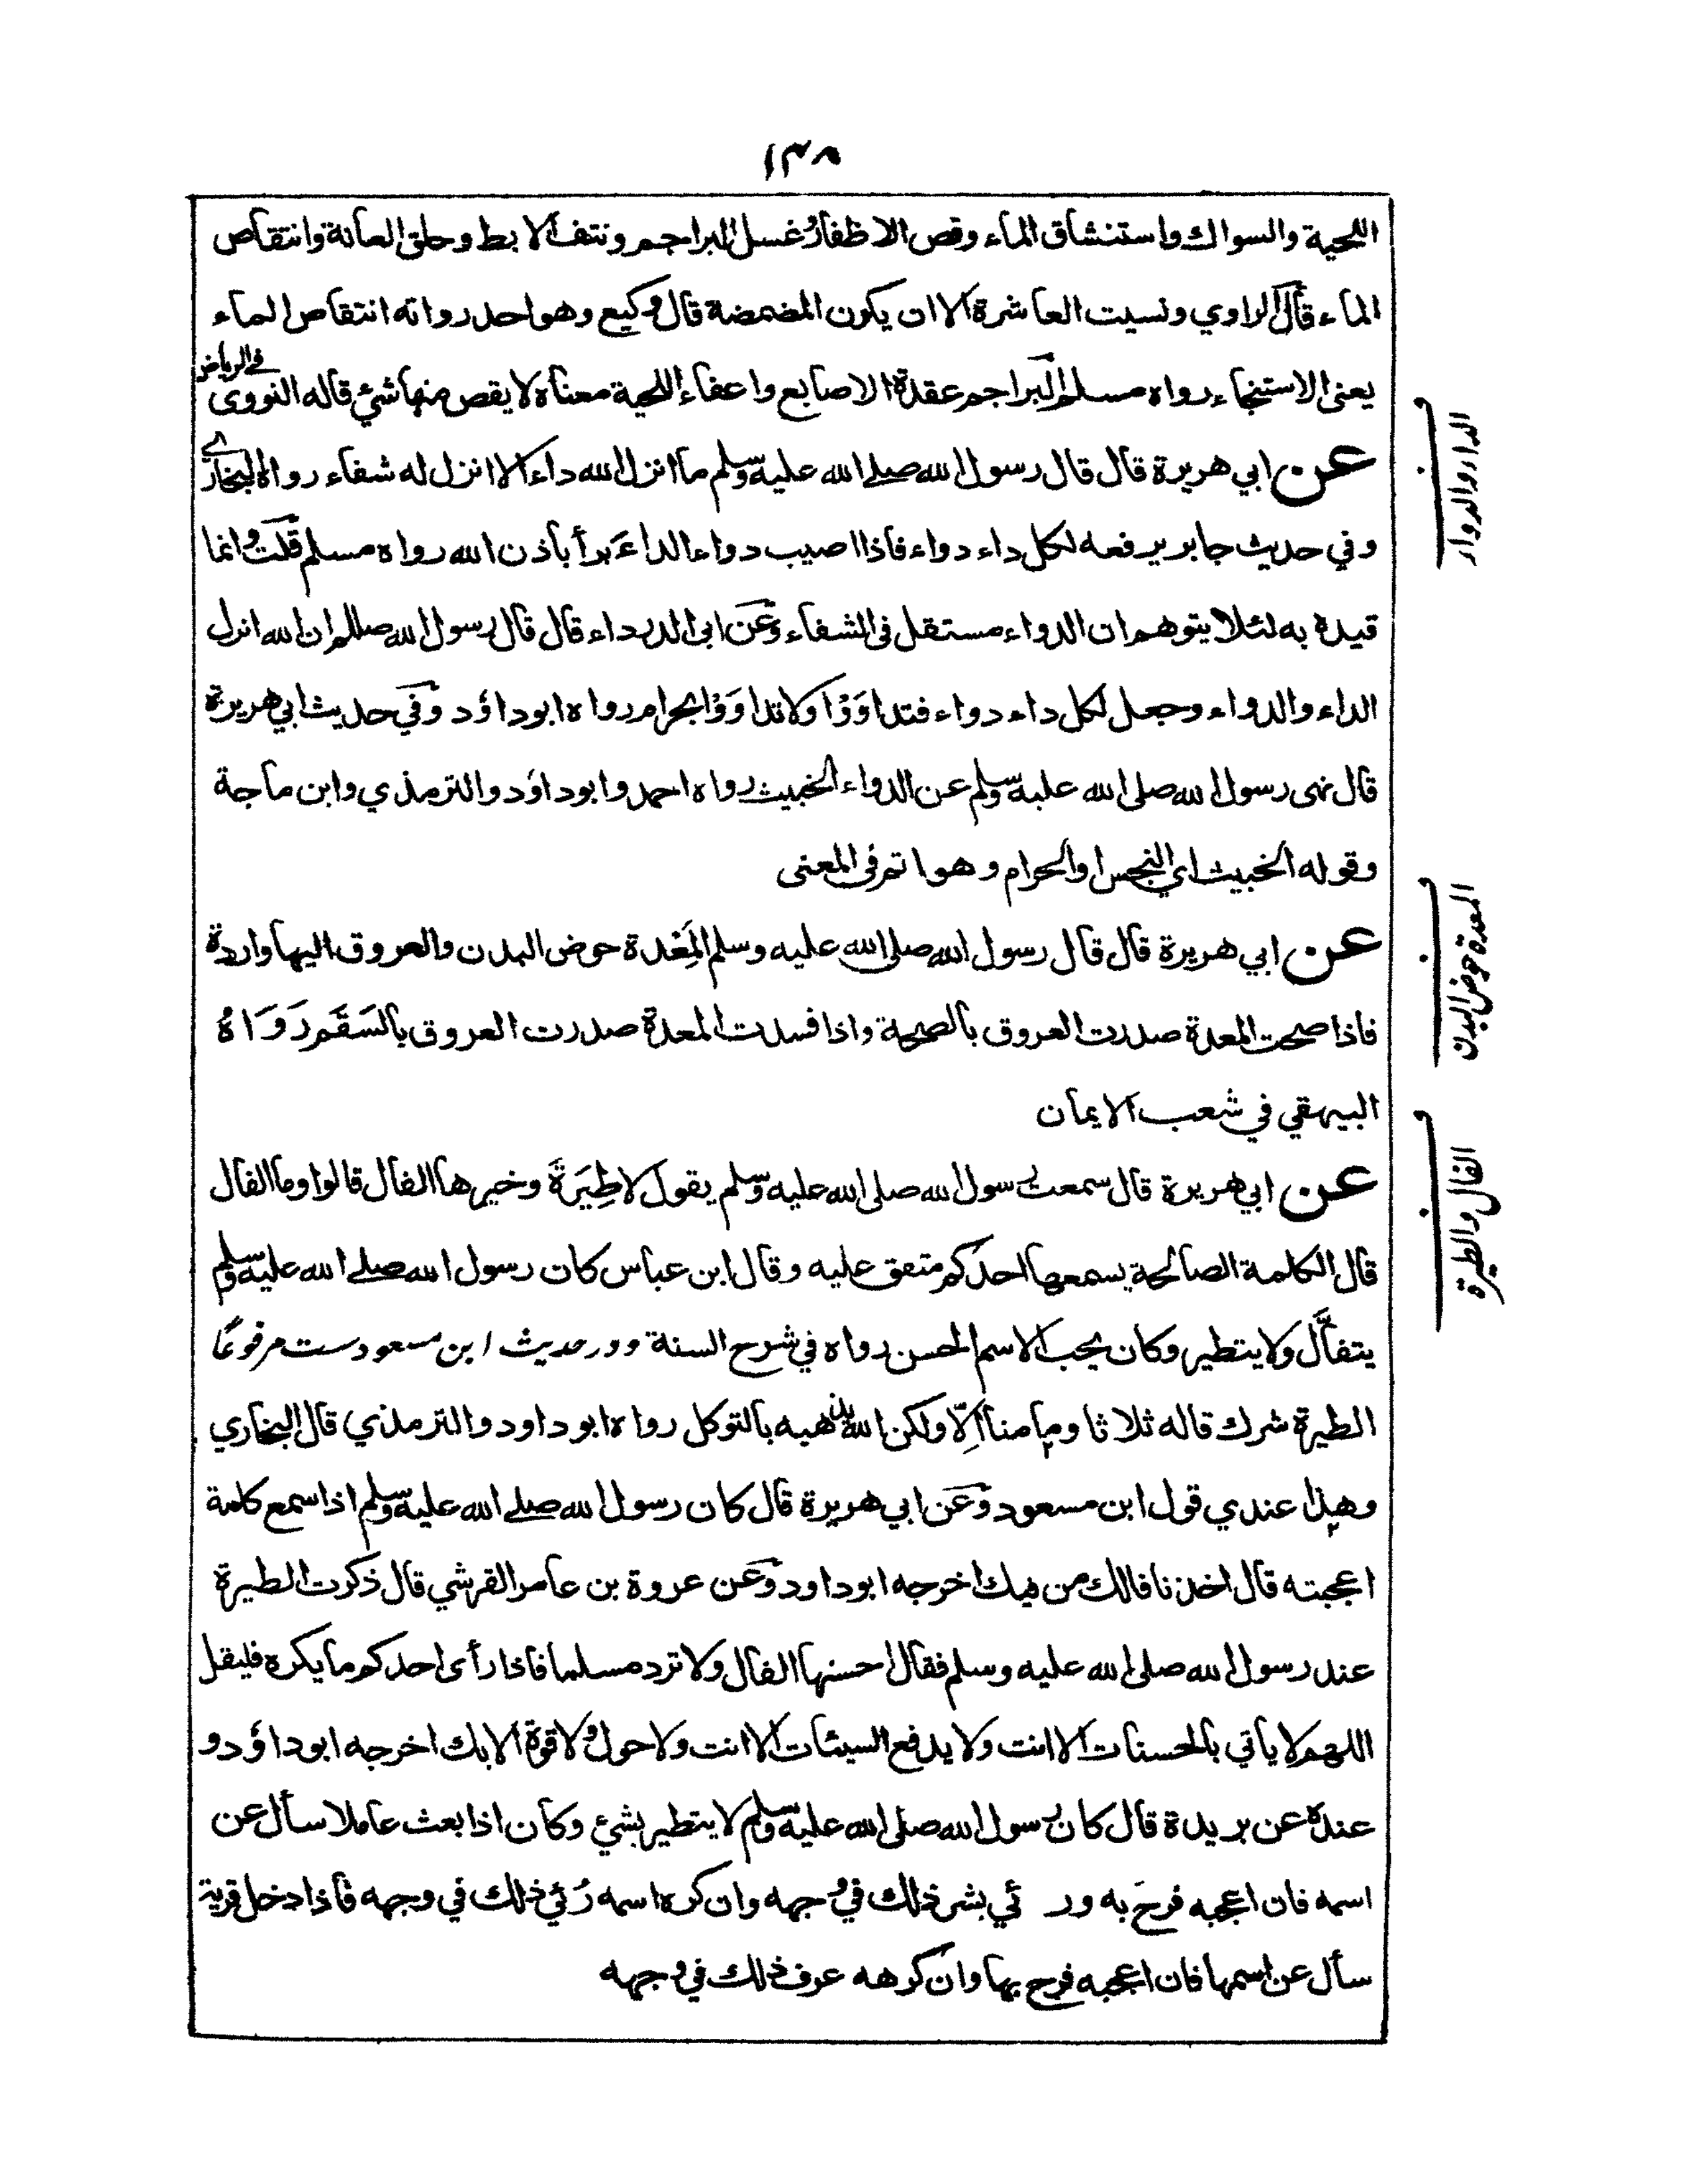 ١٣٨
اللحية والسواك واستنشاق الماء وقص الاظفار وغسل البراجم ونتف الابط وحلق العانة وانتقاص
الماء قال الراوي ونسيت العاشرة الا ان يكون المضمضة قال وكيع وهو احد رواته انتقاص الماء
يعنى الاستنجاء رواه مسلم البراجم عقدة الاصابع واعفاء اللحية معناه لا يقص منها شئ قاله النووى
فى الرياض
عن ابي هريرة قال قال رسول الله صلے الله عليه وسلم ما انزل الله داء الا انزل له شفاء رواه البخارے
وفي حديث جابر يرفعه لكل داء دواء فاذا اصيب دواء الداء بَرأ باذن الله رواه مسلم قلت وانما
قيده به لئلا يتوهم ان الدواء مستقل فى الشفاء وعن ابى الدرداء قال قال رسول الله صللم ان الله انزل
الداء والدواء وجعل لكل داء دواء فتداوَوْا ولا تداوَوْا بحرام رواه ابوداؤد وفي حديث ابي هريرة
قال نهى رسول الله صلى الله عليه وسلم عن الدواء الخبيث رواه احمد وابوداؤد والترمذي وابن ماجة
وقوله الخبيث اي النجس او الحرام وهو اتم فى المعنى
عن ابي هريرة قال قال رسول الله صلى الله عليه وسلم المَِعْدة حوض البدن والعروق اليها واردة
فاذا صحت المعدة صدرت العروق بالصحة واذا فسدت المعدة صدرت العروق بالسَقَم رَوَاهُ
البيهقي في شعب الايمان
عن ابي هريرة قال سمعت رسول الله صلى الله عليه وسلم يقول لا طِيَرَةَ وخيرها الفال قالوا وما الفال
قال الكلمة الصالحة يسمعها احدكم متفق عليه وقال ابن عباس كان رسول الله صلے الله عليه وسلم
يتفأَّل ولا يتطير وكان يحب الاسم الحسن رواه في شرح السنة وور حديث ابن مسعود ست مرفوعًا
الطيرة شرك قاله ثلاثا وما منا اِلّا ولكن الله يذهبه بالتوكل رواه ابوداود والترمذي قال البخاري
وهذا عندي قول ابن مسعود وعن ابي هريرة قال كان رسول الله صلے الله عليه وسلم اذا سمع كلمة
اعجبته قال اخذنا فالك من فيك اخرجه ابوداود وعن عروة بن عامر القرشي قال ذكرت الطيرة
عند رسول الله صلى الله عليه وسلم فقال احسنها الفال ولا ترد مسلما فاذا رأى احدكم ما يكره فليقل
اللهم لا يأتي بالحسنات الا انت ولا يدفع السيئات الا انت ولا حول ولا قوة الا بك اخرجه ابوداؤد و
عنده عن بريدة قال كان رسول الله صلى الله عليه وسلم لا يتطير بشئ وكان اذا بعث عاملا سأل عن
اسمه فان اعجبه فرح به ور ئي بشر ذلك في وجهه وان كره اسمه رُئي ذلك في وجهه فاذا دخل قرية
سأل عن اسمها فان اعجبه فرح بها وان كرهه عرف ذلك في وجهه
الداء والدواء
المعدة حوض البدن
الفال والطيرة